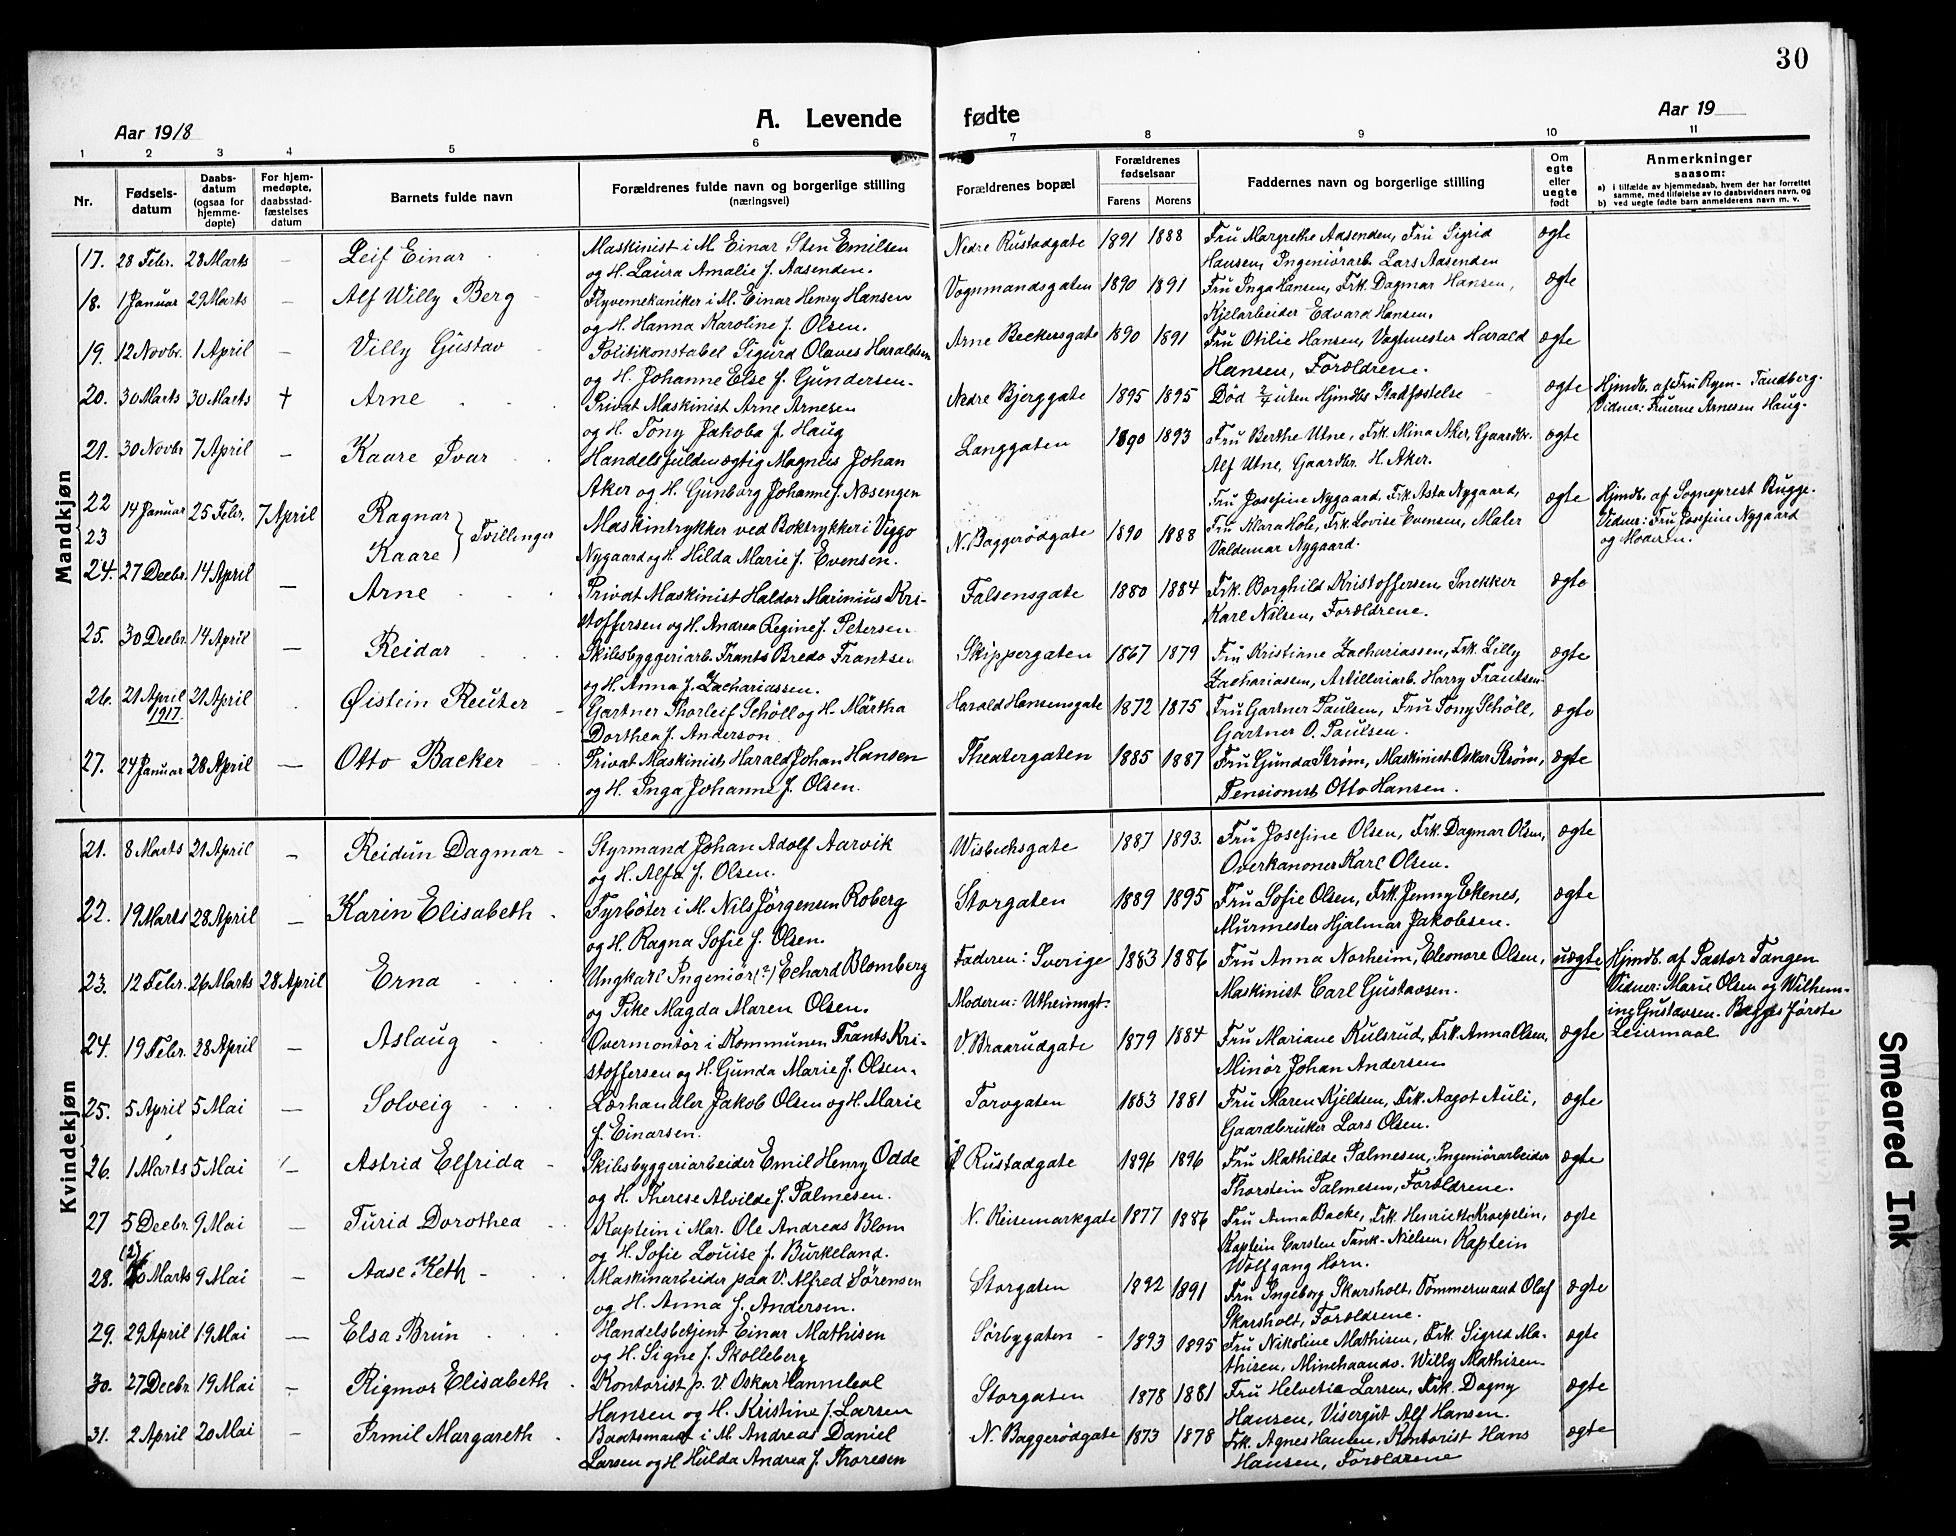 30
Aar 1918
A. Levende fødte
Aar 19
1 2 3 4 5 6 7 8 9 10 11
Nr.
Fødsels-
datum
Daabs-
datum
(ogsaa for
hjemme-
døpte)
For hjem-
medøpte,
daabsstad-
fæstelses
datum
Barnets fulde navn
Forældrenes fulde navn og borgerlige stilling
(næringsvei)
Forældrenes bopæl
Forældrenes
fødselsaar
Farens Morens
Faddernes navn og borgerlige stilling
Om
egte
eller
uegte
født
Anmerkninger
saasom:
a) i tilfælde av hjemmedaab, hvem der har forrettet
samme, med tilføielse av to daabsvidners navn, og
b) ved uegte fødte barn anmelderens navn m. v.
Mandkjøn
17. 28 Febr. 28 Marts – Leif Einar Maskinist i M. Einar Sten Emilsen Nedre Rustadgate 1891 1888 Fru Margrethe Aasenden, Fru Sigrid ægte
og H. Laura Amalie f. Aasenden. Hansen, Ingeniørarb. Lars Aasenden
18. 1 Januar 29 Marts – Alf Willy Berg Flyvemekaniker i M. Einar Henry Hansen Vognmandsgaten 1890 1891 Fru Inga Hansen, Frk. Dagmar Hansen, ægte
og H. Hanna Karoline f. Olsen. Kjelarbeider Edvard Hansen.
19. 12 Novbr. 1 April – Villy Gustav Politikonstabel Sigurd Olaves Haraldsen Arne Beckersgate 1890 1891 Fru Otilie Hansen, Vagtmester Harald ægte
og H. Johanne Else f. Gundersen. Hansen, Forældrene.
20. 30 Marts 30 Marts † Arne Privat Maskinist Arne Arnesen Nedre Bjerggate 1895 1895 Død 2/4 uten Hjmdbs Stadfæstelse ægte Hjmdb. af Fru Ryen-Tandberg.
og H. Tony Jakoba f. Haug Vidner: Fruerne Arnesen Haug.
21. 30 Novbr 7 April – Kaare Ivar Handelsfuldmægtig Magnus Johan Langgaten 1890 1893 Fru Berthe Utne, Frk. Mina Aker, Gaardbr. ægte
Aker og H. Gunborg Johanne f. Næsengen Alf Utne, Gaardbr. H. Aker.
22 14 Januar 25 Febr. 7 April Ragnar } Tvillinger Maskintrykker ved Boktrykkeri Viggo N. Baggerødgate 1890 1888 Fru Josefine Nygaard, Frk. Asta Nygaard, ægte Hjmdb. af Sogneprest Bugge.
23 Kaare Nygaard og H. Hilda Marie f. Evensen. Fru Mara Hole, Frk. Lovise Evensen, Maler Vidner: Fru Josefine Nygaard
Valdemar Nygaard. og Moderen.
24. 27 Decbr. 14 April – Arne Privat Maskinist Haldor Marinius Kri- Falsensgate 1880 1884 Frk. Borghild Kristoffersen, Snekker ægte
stoffersen og H. Andrea Regine f. Petersen. Karl Nilsen, Forældrene.
25. 30 Decbr. 14 April – Reidar Skibsbyggeriarb. Frants Bredo Frantsen Skippergaten 1867 1879 Fru Kristiane Zachariassen, Frk. Lilly ægte
og H. Anna f. Zachariassen. Zachariassen, Artilleriarb. Harry Frantsen.
26. 21 April 21 April Øistein Reuter – Gartner Thorleif Schøll og H. Märtha Harald Hansensgate 1872 1875 Fru Gartner Paulsen, Fru Tony Schøll, ægte
1917. Dorthea f. Anderson. Gartner O. Paulsen.
27. 24 Januar 28 April – Otto Backer Privat Maskinist Harald Johan Hansen Theatergaten 1885 1887 Fru Gunda Strøm, Maskinist Oskar Strøm, ægte
og H. Inga Johanne f. Olsen. Pensionist Otto Hansen.
Kvindekjøn
21. 8 Marts 21 April – Reidun Dagmar – Styrmand Johan Adolf Aarvik Wisbechsgate 1887 1893. Fru Josefine Olsen, Frk. Dagmar Olsen, ægte
og H. Alfa f. Olsen. Overkanoner Karl Olsen.
22. 19 Marts 28 April – Karin Elisabeth Fyrbøter i M. Nils Jørgensen Roberg Storgaten 1889 1895 Fru Sofie Olsen, Frk. Jenny Ekenes, ægte
og H. Ragna Sofie f. Olsen. Murmester Hjalmar Jakobsen.
23. 12 Febr. 26 Marts 28 April Erna Ungkarl Ingeniør(?) Echard Blomberg Faderen: Sverige 1883 1886 Fru Anna Norheim, Eleonore Olsen, uægte Hjmdb. af Pastor Tangen
og Pike Magda Maren Olsen. Moderen: Utheimgt. Maskinist Carl Gustavsen. Vidner: Marie Olsen og Wilhem-
ine Gustavsen. Begges første
24. 19 Febr. 28 April – Aslaug Overmontør i Kommunen Frants Kri- V. Braarudgate 1879 1884 Fru Mariane Kulsrud, Frk. Anna Olsen, ægte Leiermaal
stoffersen og H. Gunda Marie f. Olsen. Minør Johan Andersen
25. 5 April 5 Mai – Solveig Lærhandler Jakob Olsen og H. Marie Torvgaten 1883 1881 Fru Maren Kjeldsen, Frk. Aagot Auli, ægte
f. Einarsen. Gaardbruker Lars Olsen.
26. 1 Marts 5 Mai – Astrid Elfrida – Skibsbyggeriarbeider Emil Henry Odde Ø Rustadgate 1896 1896 Fru Mathilde Palmesen, Ingeniørarbeider ægte
og H. Therese Alvilde f. Palmesen. Thorstein Palmesen, Forældrene.
27 5 Decbr. 9 Mai – Turid Dorothea Kaptein i Mar. Ole Andreas Blom N. Keisemarkgate 1877 1886 Fru Anna Backe, Frk. Henriette Kroepelin, ægte
og H. Sofie Louise f. Burkeland. Kaptein Carsten Tank-Nielsen, Kaptein
Wolfgang Horn.
28. Marts 9 Mai – Aase Keth – Maskinarbeider paa V. Alfred Sørensen Storgaten 1892 1891 Fru Ingeborg Skarsholt, Tømmermand Olaf ægte
og H. Anna f. Andersen. Skarsholt, Forældrene.
29. 29 April 19 Mai – Elsa Brun Handelsbetjent Einar Mathisen Sørbygaten 1893 1895 Fru Nikoline Mathisen, Frk. Sigrid Ma- ægte
og H. Signe f. Skolleberg thisen, Minehaandv. Willy Mathisen.
30. 27 Decbr. 19 Mai – Rigmor Elisabeth Kontorist p. V. Oskar Hannibal Storgaten 1878 1881 Fru Helvetia Larsen, Frk. Dagny ægte
Hansen og H. Kristine f. Larsen Hansen, Visergut Alf Hansen.
31. 2 April 20 Mai – Irmil Margareth Baatsmand i M. Andreas Daniel N. Baggerødgate 1873 1878 Frk. Agnes Hansen, Kontorist Hans ægte
Larsen og H Hulda Andrea f. Thoresen Hansen, Forældrene
Smeared Ink